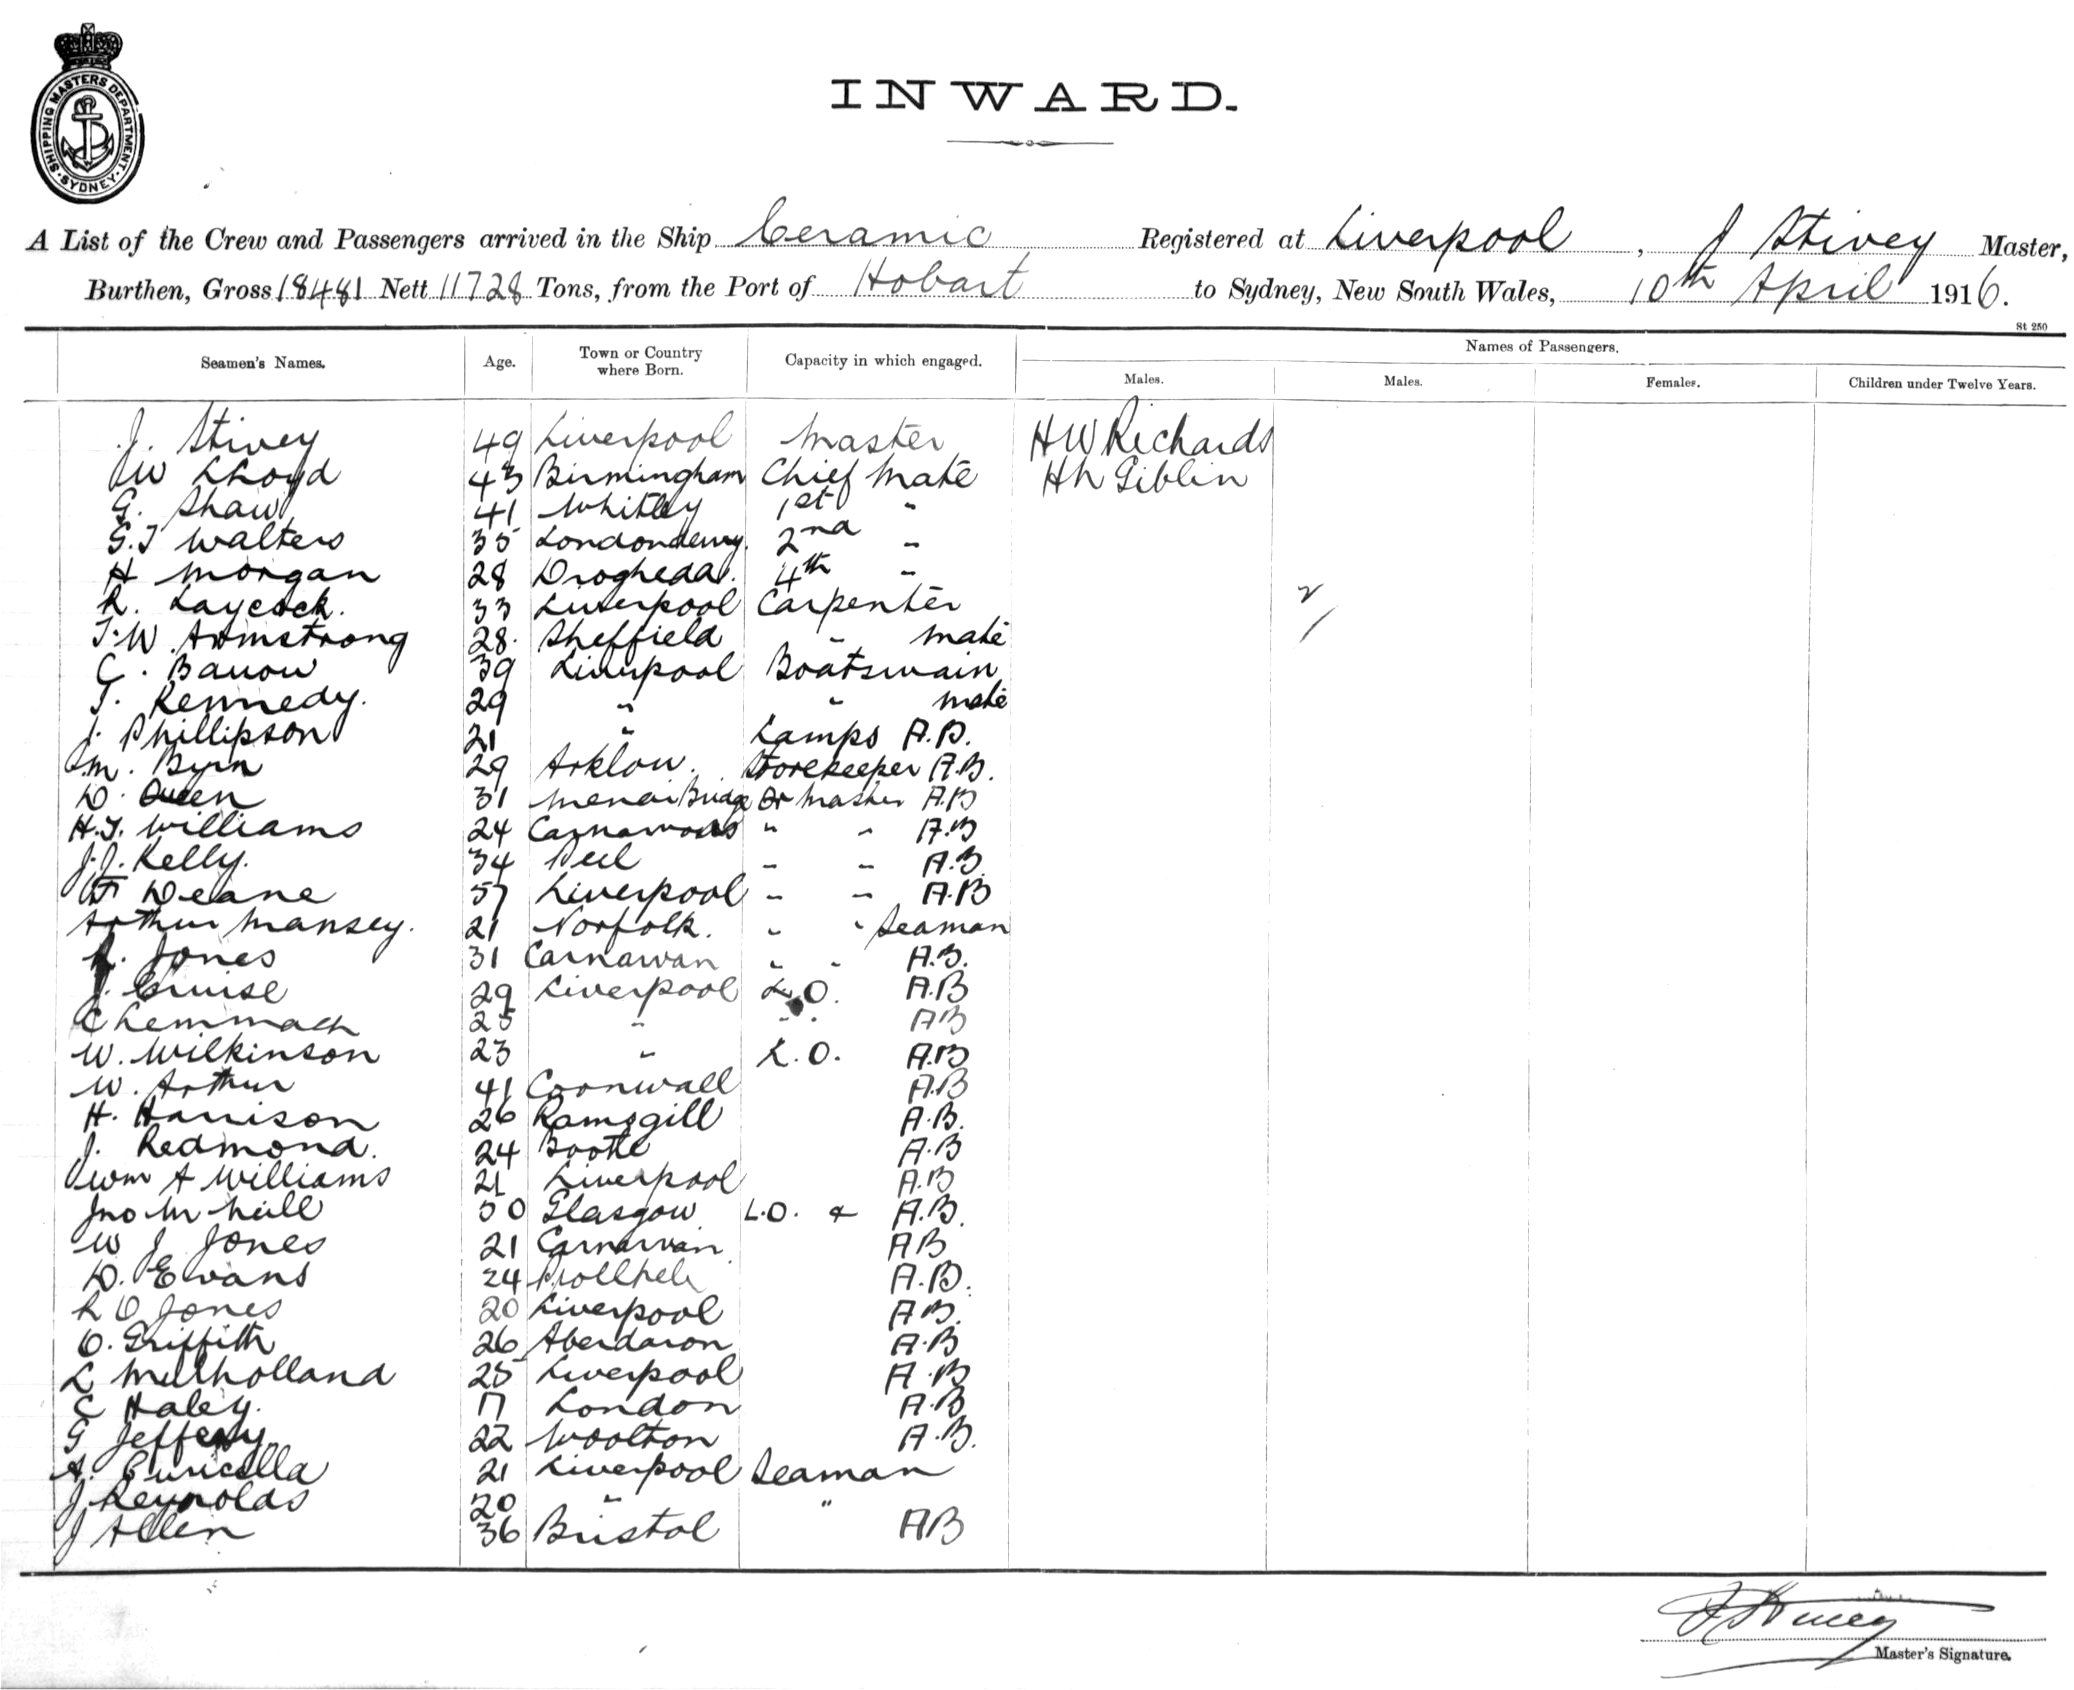 SHIPPING MASTERS DEPARTMENT. SYDNEY
INWARD.
A List of the Crew and Passengers arrived in the Ship Ceramic Registered at Liverpool, J Stivey Master,
Burthen, Gross 18481 Nett 11728 Tons, from the Port of Hobart to Sydney, New South Wales, 10th April 1916.
St 250
Seamen's Names. Age. Town or Country where Born. Capacity in which engaged. Names of Passengers.
Males. Males. Females. Children under Twelve Years.
J. Stivey 49 Liverpool Master HW Richards
W Lloyd 43 Birmingham Chief Mate Giblin
G. Shaw 41 Whitley 1st "
G.T Walters 35 Londonderry. 2nd "
H Morgan 28 Drogheda. 4th "
R. Laycock. 33 Liverpool Carpenter
T.W. Armstrong 28. Sheffield " mate
C. Barrow 39 Liverpool Boatswain
T. Kennedy. 29 " " mate
J. Phillipson 21 " Lamps A.B.
M. Byrn 29 Arklow. Storekeeper A.B.
D. Owen 31 Menai Bridge Qr Master A.B
H.T. Williams 24 " " A.B
J.J. Kelly. 34 Peel " " A.B.
F Deane 57 Liverpool " " A.B
Arthur Mansey. 21 Norfolk. " " Seaman
R. Jones 31 Carnarvan " " A.B.
J. Cruise 29 Liverpool L.O. A.B
C 25 " " AB
W. Wilkinson 23 " L.O. A.B
W. Arthur 41 Cornwall A.B
H. Harrison 26 Ramsgill A.B.
J. Redmond. 24 Bootle A.B
Wm A Williams 21 Liverpool A.B
Jno McNeill 50 Glasgow L.O. & A.B.
W J Jones 21 Carnarvan AB
D. Evans 24 A.B.
R O Jones 20 Liverpool AB.
O. Griffith 26 Aberdaron A.B
L Mulholland 25 Liverpool A.B
C Haley. 17 London A.B
G Jeffery 22 Woolton A.B.
A. Puricella 21 Liverpool Seaman
J Reynolds 20 " "
J Allen 36 Bristol AB
J Stivey
Master's Signature.